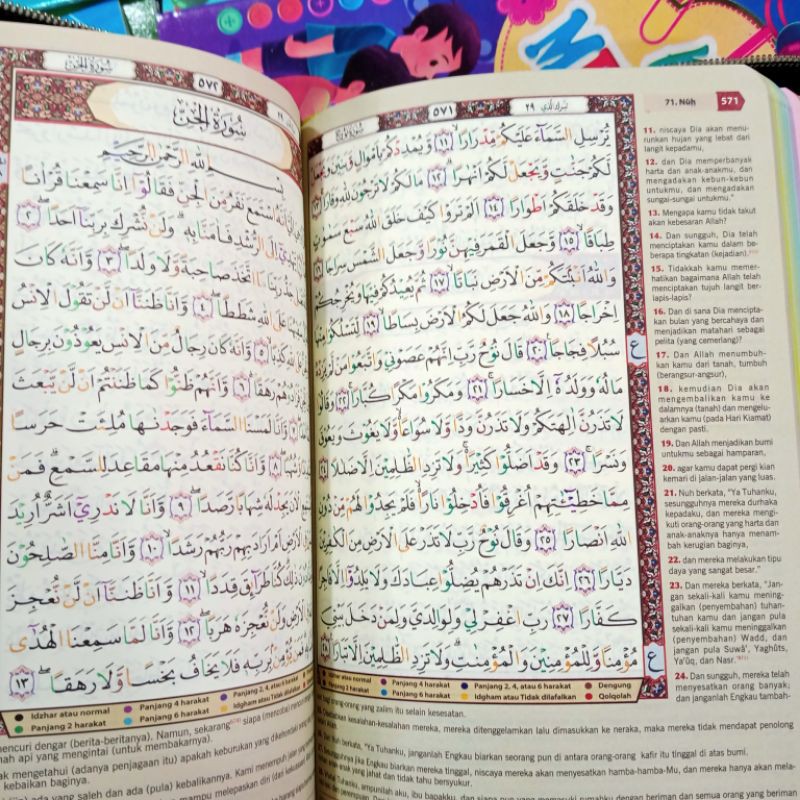 71. Nūḥ 571
تبٰرك الذي ٢٩
٥٧١
يُّرْسِلِ السَّمَآءَ عَلَيْكُمْ مِّدْرَارًا ۙ ١١ وَّيُمْدِدْكُمْ بِاَمْوَالٍ وَّبَنِيْنَ وَيَجْعَلْ
لَّكُمْ جَنّٰتٍ وَّيَجْعَلْ لَّكُمْ اَنْهٰرًا ۗ ١٢ مَا لَكُمْ لَا تَرْجُوْنَ لِلّٰهِ وَقَارًا ۚ ١٣
وَقَدْ خَلَقَكُمْ اَطْوَارًا ١٤ اَلَمْ تَرَوْا كَيْفَ خَلَقَ اللّٰهُ سَبْعَ سَمٰوٰتٍ
طِبَاقًا ۙ ١٥ وَّجَعَلَ الْقَمَرَ فِيْهِنَّ نُوْرًا وَّجَعَلَ الشَّمْسَ سِرَاجًا ١٦
وَاللّٰهُ اَنْۢبَتَكُمْ مِّنَ الْاَرْضِ نَبَاتًا ۙ ١٧ ثُمَّ يُعِيْدُكُمْ فِيْهَا وَيُخْرِجُكُمْ
اِخْرَاجًا ١٨ وَاللّٰهُ جَعَلَ لَكُمُ الْاَرْضَ بِسَاطًا ۙ ١٩ لِّتَسْلُكُوْا مِنْهَا
سُبُلًا فِجَاجًا ࣖ ٢٠ قَالَ نُوْحٌ رَّبِّ اِنَّهُمْ عَصَوْنِيْ وَاتَّبَعُوْا مَنْ لَّمْ يَزِدْهُ
مَالُهٗ وَوَلَدُهٗٓ اِلَّا خَسَارًا ۚ ٢١ وَمَكَرُوْا مَكْرًا كُبَّارًا ۚ ٢٢ وَقَالُوْا
لَا تَذَرُنَّ اٰلِهَتَكُمْ وَلَا تَذَرُنَّ وَدًّا وَّلَا سُوَاعًا ەۙ وَّلَا يَغُوْثَ وَيَعُوْقَ
وَنَسْرًا ۚ ٢٣ وَقَدْ اَضَلُّوْا كَثِيْرًا ەۚ وَلَا تَزِدِ الظّٰلِمِيْنَ اِلَّا ضَلٰلًا ٢٤
مِمَّا خَطِيْۤـٰٔتِهِمْ اُغْرِقُوْا فَاُدْخِلُوْا نَارًا ەۙ فَلَمْ يَجِدُوْا لَهُمْ مِّنْ دُوْنِ
اللّٰهِ اَنْصَارًا ٢٥ وَقَالَ نُوْحٌ رَّبِّ لَا تَذَرْ عَلَى الْاَرْضِ مِنَ الْكٰفِرِيْنَ
دَيَّارًا ٢٦ اِنَّكَ اِنْ تَذَرْهُمْ يُضِلُّوْا عِبَادَكَ وَلَا يَلِدُوْٓا اِلَّا فَاجِرًا
كَفَّارًا ٢٧ رَبِّ اغْفِرْ لِيْ وَلِوَالِدَيَّ وَلِمَنْ دَخَلَ بَيْتِيَ
مُؤْمِنًا وَّلِلْمُؤْمِنِيْنَ وَالْمُؤْمِنٰتِۗ وَلَا تَزِدِ الظّٰلِمِيْنَ اِلَّا تَبَارًا ࣖ ٢٨
Idzhar atau normal Panjang 4 harakat Panjang 2, 4, atau 6 harakat Dengung
Panjang 2 harakat Panjang 6 harakat Idgham atau Tidak dilafalkan Qolqolah
11. niscaya Dia akan menu-
runkan hujan yang lebat dari
langit kepadamu,
12. dan Dia memperbanyak
harta dan anak-anakmu, dan
mengadakan kebun-kebun
untukmu, dan mengadakan
sungai-sungai untukmu."
13. Mengapa kamu tidak takut
akan kebesaran Allah?
14. Dan sungguh, Dia telah
menciptakan kamu dalam be-
berapa tingkatan (kejadian).
15. Tidakkah kamu memer-
hatikan bagaimana Allah telah
menciptakan tujuh langit ber-
lapis-lapis?
16. Dan di sana Dia mencipta-
kan bulan yang bercahaya dan
menjadikan matahari sebagai
pelita (yang cemerlang)?
17. Dan Allah menumbuh-
kan kamu dari tanah, tumbuh
(berangsur-angsur),
18. kemudian Dia akan
mengembalikan kamu ke
dalamnya (tanah) dan mengelu-
arkan kamu (pada Hari Kiamat)
dengan pasti.
19. Dan Allah menjadikan bumi
untukmu sebagai hamparan,
20. agar kamu dapat pergi kian
kemari di jalan-jalan yang luas.
21. Nuh berkata, "Ya Tuhanku,
sesungguhnya mereka durhaka
kepadaku, dan mereka mengi-
kuti orang-orang yang harta dan
anak-anaknya hanya menam-
bah kerugian baginya,
22. dan mereka melakukan tipu
daya yang sangat besar."
23. Dan mereka berkata, "Jan-
gan sekali-kali kamu mening-
galkan (penyembahan) tuhan-
tuhan kamu dan jangan pula
sekali-kali kamu meninggalkan
(penyembahan) Wadd, dan
jangan pula Suwā', Yaghūts,
Ya'ūq, dan Nasr.
24. Dan sungguh, mereka telah
menyesatkan orang banyak;
dan janganlah Engkau tambah-
bagi orang-orang yang zalim itu selain kesesatan.
kesalahan-kesalahan mereka, mereka ditenggelamkan lalu dimasukkan ke neraka, maka mereka tidak mendapat penolong
Nuh berkata, "Ya Tuhanku, janganlah Engkau biarkan seorang pun di antara orang-orang kafir itu tinggal di atas bumi.
jika Engkau biarkan mereka tinggal, niscaya mereka akan menyesatkan hamba-hamba-Mu, dan mereka hanya akan mela-
yang jahat dan tidak tahu bersyukur.
Ya Tuhanku, ampunilah aku, ibu bapakku, dan siapa pun yang memasuki rumahku dengan beriman dan semua orang yang beriman
٥٧٢
سُوْرَةُ الْجِنِّ
سُوْرَةُ الْجِنِّ
بِسْمِ اللّٰهِ الرَّحْمٰنِ الرَّحِيْمِ
اسْتَمَعَ نَفَرٌ مِّنَ الْجِنِّ فَقَالُوْٓا اِنَّا سَمِعْنَا قُرْاٰنًا
يَّهْدِيْٓ اِلَى الرُّشْدِ فَاٰمَنَّا بِهٖۗ وَلَنْ نُّشْرِكَ بِرَبِّنَآ اَحَدًا ۖ ٢
جَدُّ رَبِّنَا مَا اتَّخَذَ صَاحِبَةً وَّلَا وَلَدًا ۖ ٣ وَّاَنَّهٗ كَانَ
عَلَى اللّٰهِ شَطَطًا ۖ ٤ وَّاَنَّا ظَنَنَّآ اَنْ لَّنْ تَقُوْلَ الْاِنْسُ
اللّٰهِ كَذِبًا ۙ ٥ وَّاَنَّهٗ كَانَ رِجَالٌ مِّنَ الْاِنْسِ يَعُوْذُوْنَ بِرِجَالٍ
فَزَادُوْهُمْ رَهَقًا ۙ ٦ وَّاَنَّهُمْ ظَنُّوْا كَمَا ظَنَنْتُمْ اَنْ لَّنْ يَّبْعَثَ
وَّاَنَّا لَمَسْنَا السَّمَآءَ فَوَجَدْنٰهَا مُلِئَتْ حَرَسًا
وَّشُهُبًا ۙ ٨ وَّاَنَّا كُنَّا نَقْعُدُ مِنْهَا مَقَاعِدَ لِلسَّمْعِۗ فَمَنْ
يَجِدْ لَهٗ شِهَابًا رَّصَدًا ۖ ٩ وَّاَنَّا لَا نَدْرِيْٓ اَشَرٌّ اُرِيْدَ
الْاَرْضِ اَمْ اَرَادَ بِهِمْ رَبُّهُمْ رَشَدًا ۙ ١٠ وَّاَنَّا مِنَّا الصّٰلِحُوْنَ
دُوْنَ ذٰلِكَۗ كُنَّا طَرَاۤىِٕقَ قِدَدًا ۙ ١١ وَّاَنَّا ظَنَنَّآ اَنْ لَّنْ نُّعْجِزَ
الْاَرْضِ وَلَنْ نُّعْجِزَهٗ هَرَبًا ۖ ١٢ وَّاَنَّا لَمَّا سَمِعْنَا الْهُدٰىٓ
فَمَنْ يُّؤْمِنْۢ بِرَبِّهٖ فَلَا يَخَافُ بَخْسًا وَّلَا رَهَقًا ۖ ١٣
Idzhar atau normal Panjang 4 harakat Panjang 2, 4, atau 6 harakat
Panjang 2 harakat Panjang 6 harakat Idgham atau Tidak dilafalkan
mencuri dengar (berita-beritanya). Namun, sekarang siapa (mencoba)
api yang mengintai (untuk membakarnya).
mengetahui (adanya penjagaan itu) apakah keburukan yang dikehendaki
kebaikan baginya.
ada yang saleh dan ada (pula) kebalikannya. Kami menempuh jalan yang
mampu melepaskan diri (dari